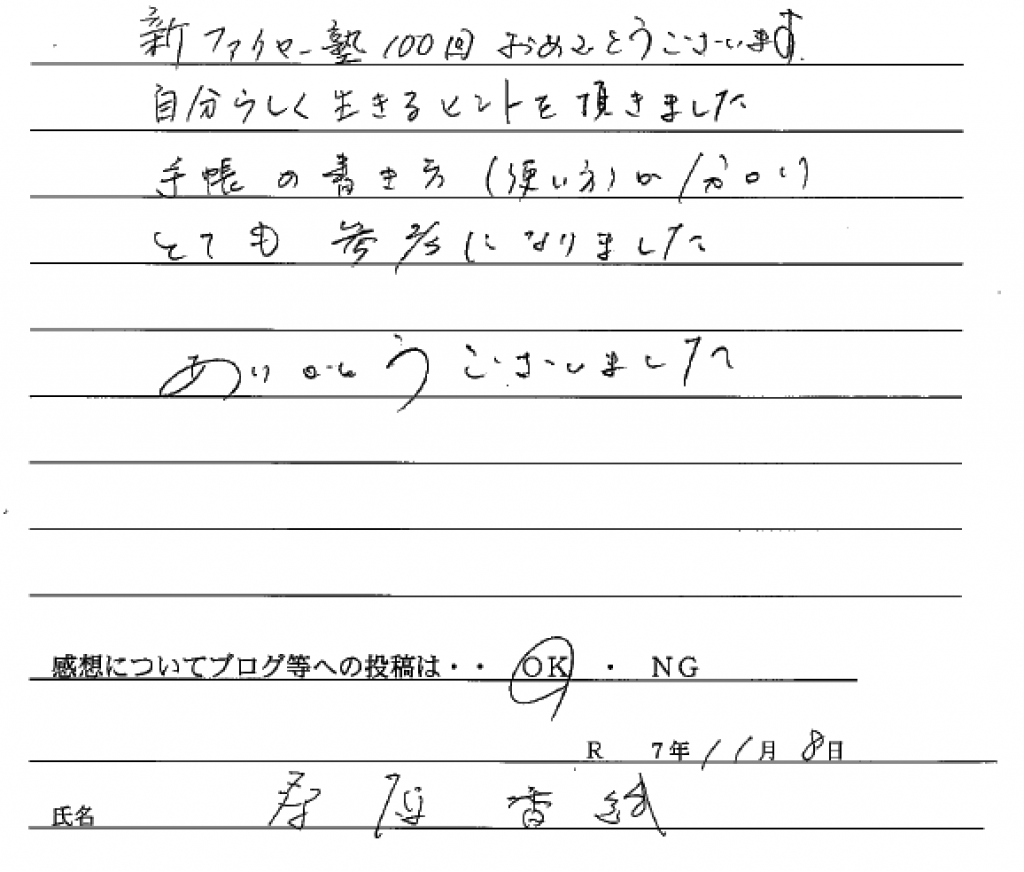 新ファイヤー塾100回おめでとうございます。
自分らしく生きるヒントを頂きました
手帳の書き方(使い方)が分かり
とても参考になりました
ありがとうございました
感想についてブログ等への投稿は・・ OK ・ NG
R 7年11月8日
氏名 原 香織